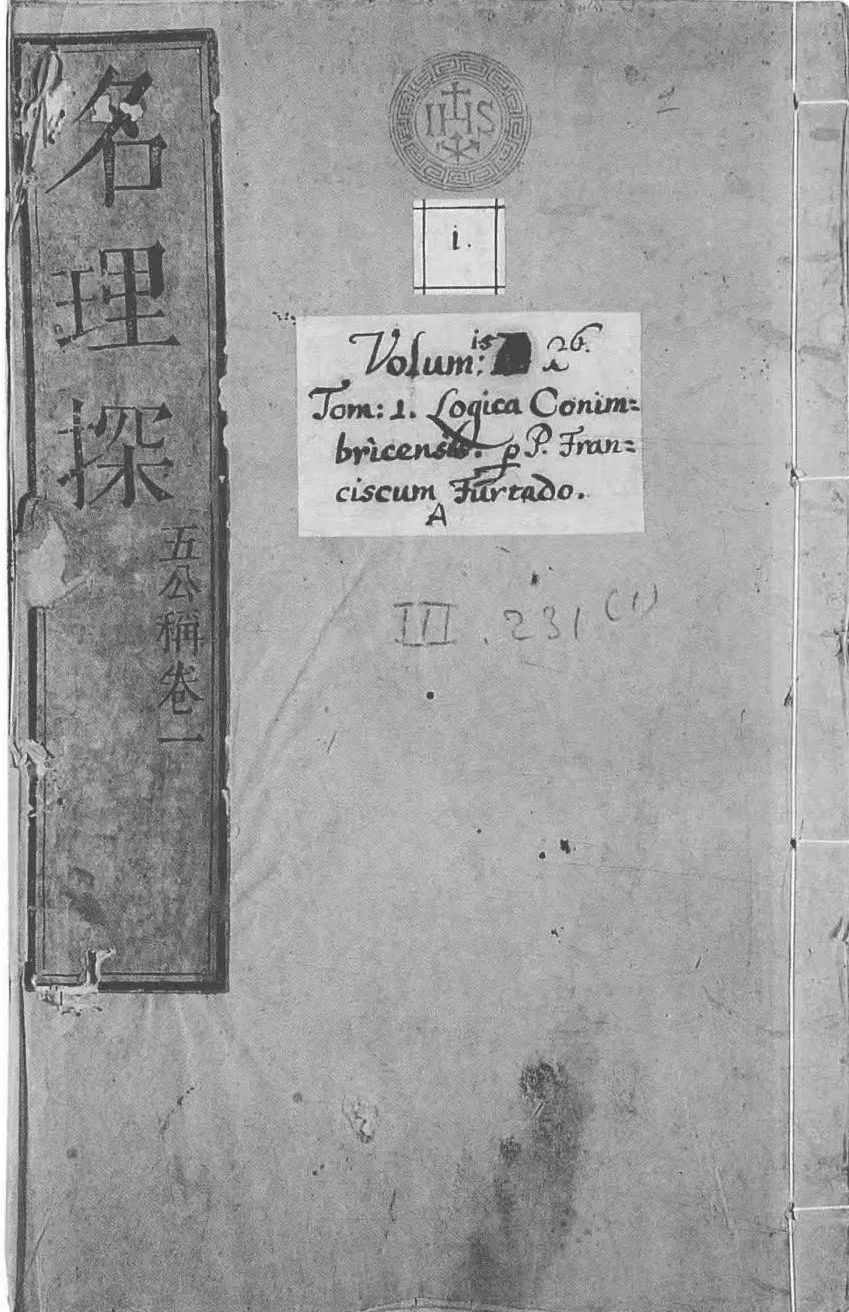 名理探
五公稱卷一
IHS
i.
Volum: is 26.
Tom: 1. Logica Conim=
bricensis. p P. Fran=
ciscum Furtado.
A
III. 231 (1)